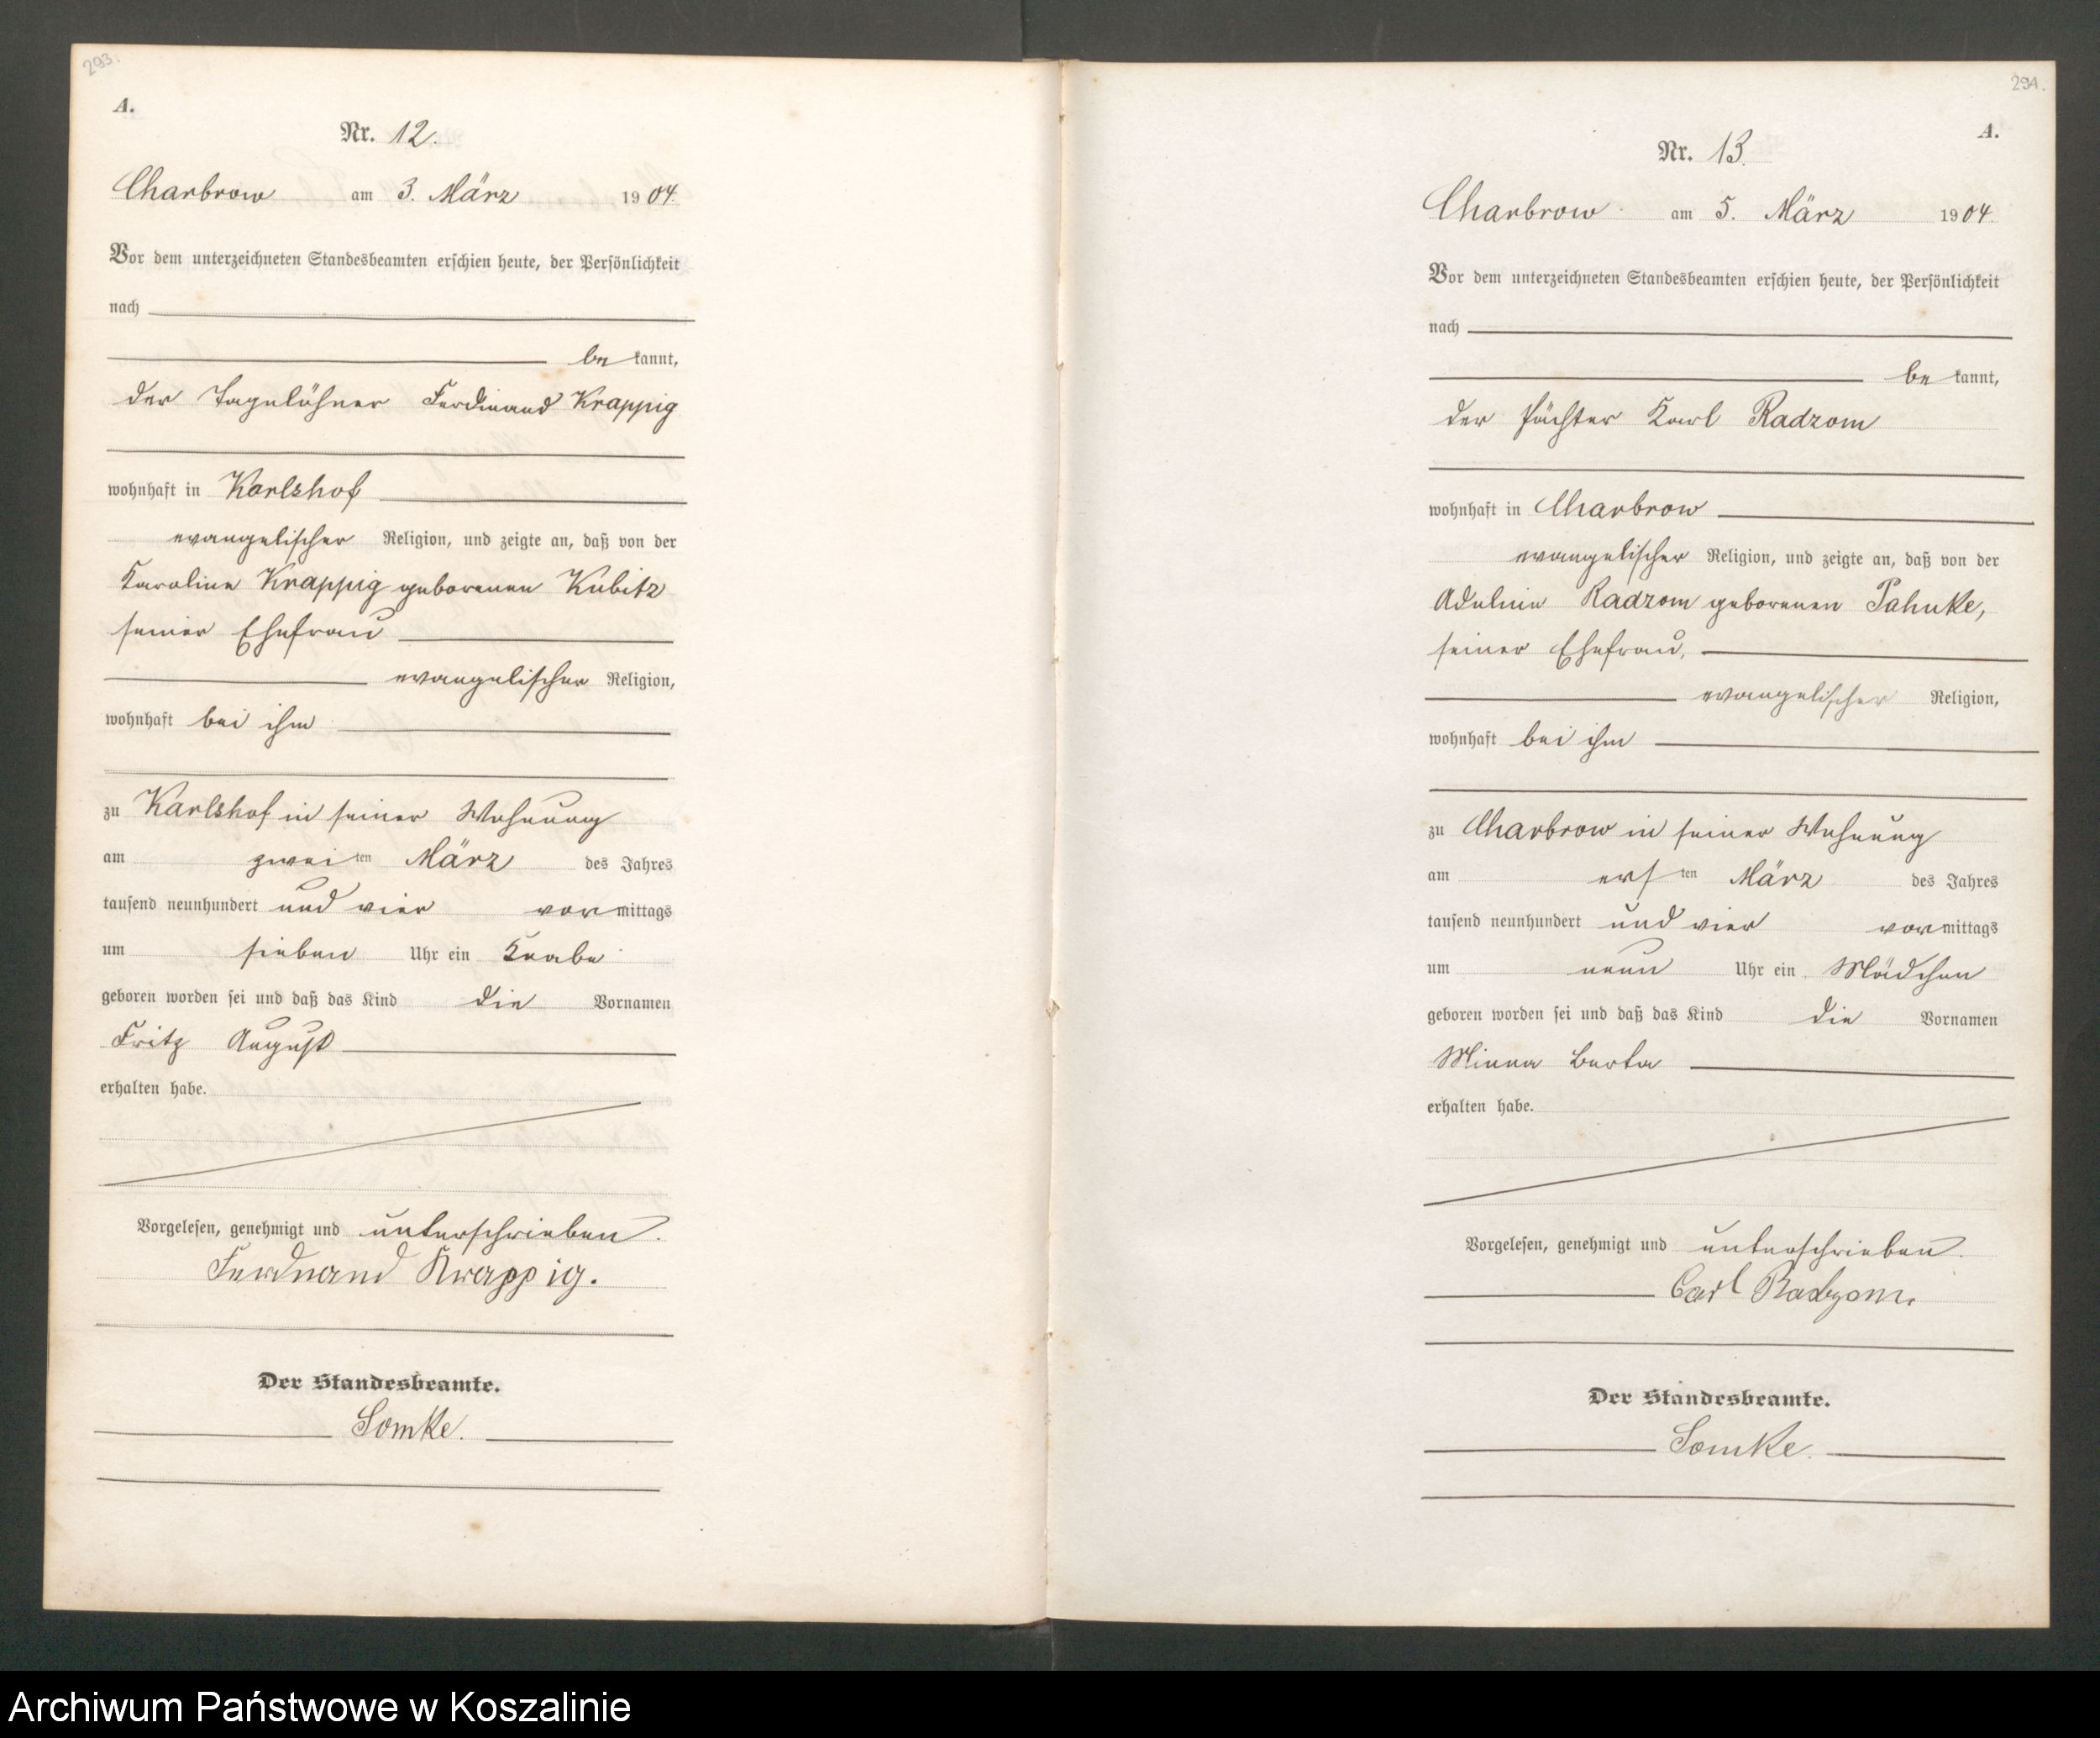 293.
A.
Nr. 12.
Charbrow am 3. März 1904.
Vor dem unterzeichneten Standesbeamten erschien heute, der Persönlichkeit
nach
be kannt,
der Tagelöhner Ferdinand Krappig
wohnhaft in Karlshof
evangelischer Religion, und zeigte an, daß von der
Karoline Krappig geborenen Kubitz
seiner Ehefrau
evangelischer Religion,
wohnhaft bei ihm
zu Karlshof in seiner Wohnung
am zwei ten März des Jahres
tausend neunhundert und vier vormittags
um sieben Uhr ein Knabe
geboren worden sei und daß das Kind die Vornamen
Fritz August
erhalten habe.
Vorgelesen, genehmigt und unterschrieben.
Ferdinand Krappig.
Der Standesbeamte.
Somke.
294.
A.
Nr. 13.
Charbrow am 5. März 1904.
Vor dem unterzeichneten Standesbeamten erschien heute, der Persönlichkeit
nach
be kannt,
der Pächter Karl Radzom
wohnhaft in Charbrow
evangelischer Religion, und zeigte an, daß von der
Adeline Radzom geborenen Pahnke,
seiner Ehefrau,
evangelischer Religion,
wohnhaft bei ihm
zu Charbrow in seiner Wohnung
am ers ten März des Jahres
tausend neunhundert und vier vormittags
um neun Uhr ein Mädchen
geboren worden sei und daß das Kind die Vornamen
Minna Berta
erhalten habe.
Vorgelesen, genehmigt und unterschrieben.
Carl Radzom.
Der Standesbeamte.
Somke.
Archiwum Państwowe w Koszalinie